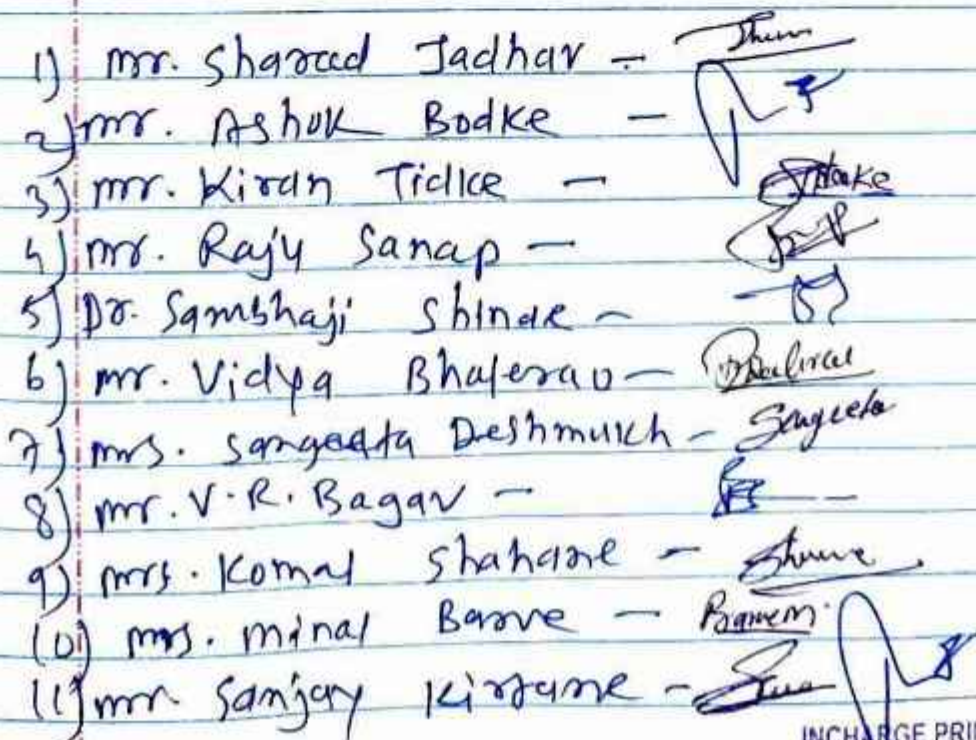 1) mr. Sharad Jadhav -
2) mr. Ashok Bodke -
3) mr. Kiran Tidke -
4) mr. Raju Sanap -
5) Dr. Sambhaji Shinde -
6) mr. Vidya Bhalerao -
7) mrs. Sangeeta Deshmukh - Sangeeta
8) mr. V.R. Bagav -
9) mrs. Komal Shahane -
10) mrs. minal Barve - Barvem
11) mr. Sanjay Kirtane -
INCHARGE